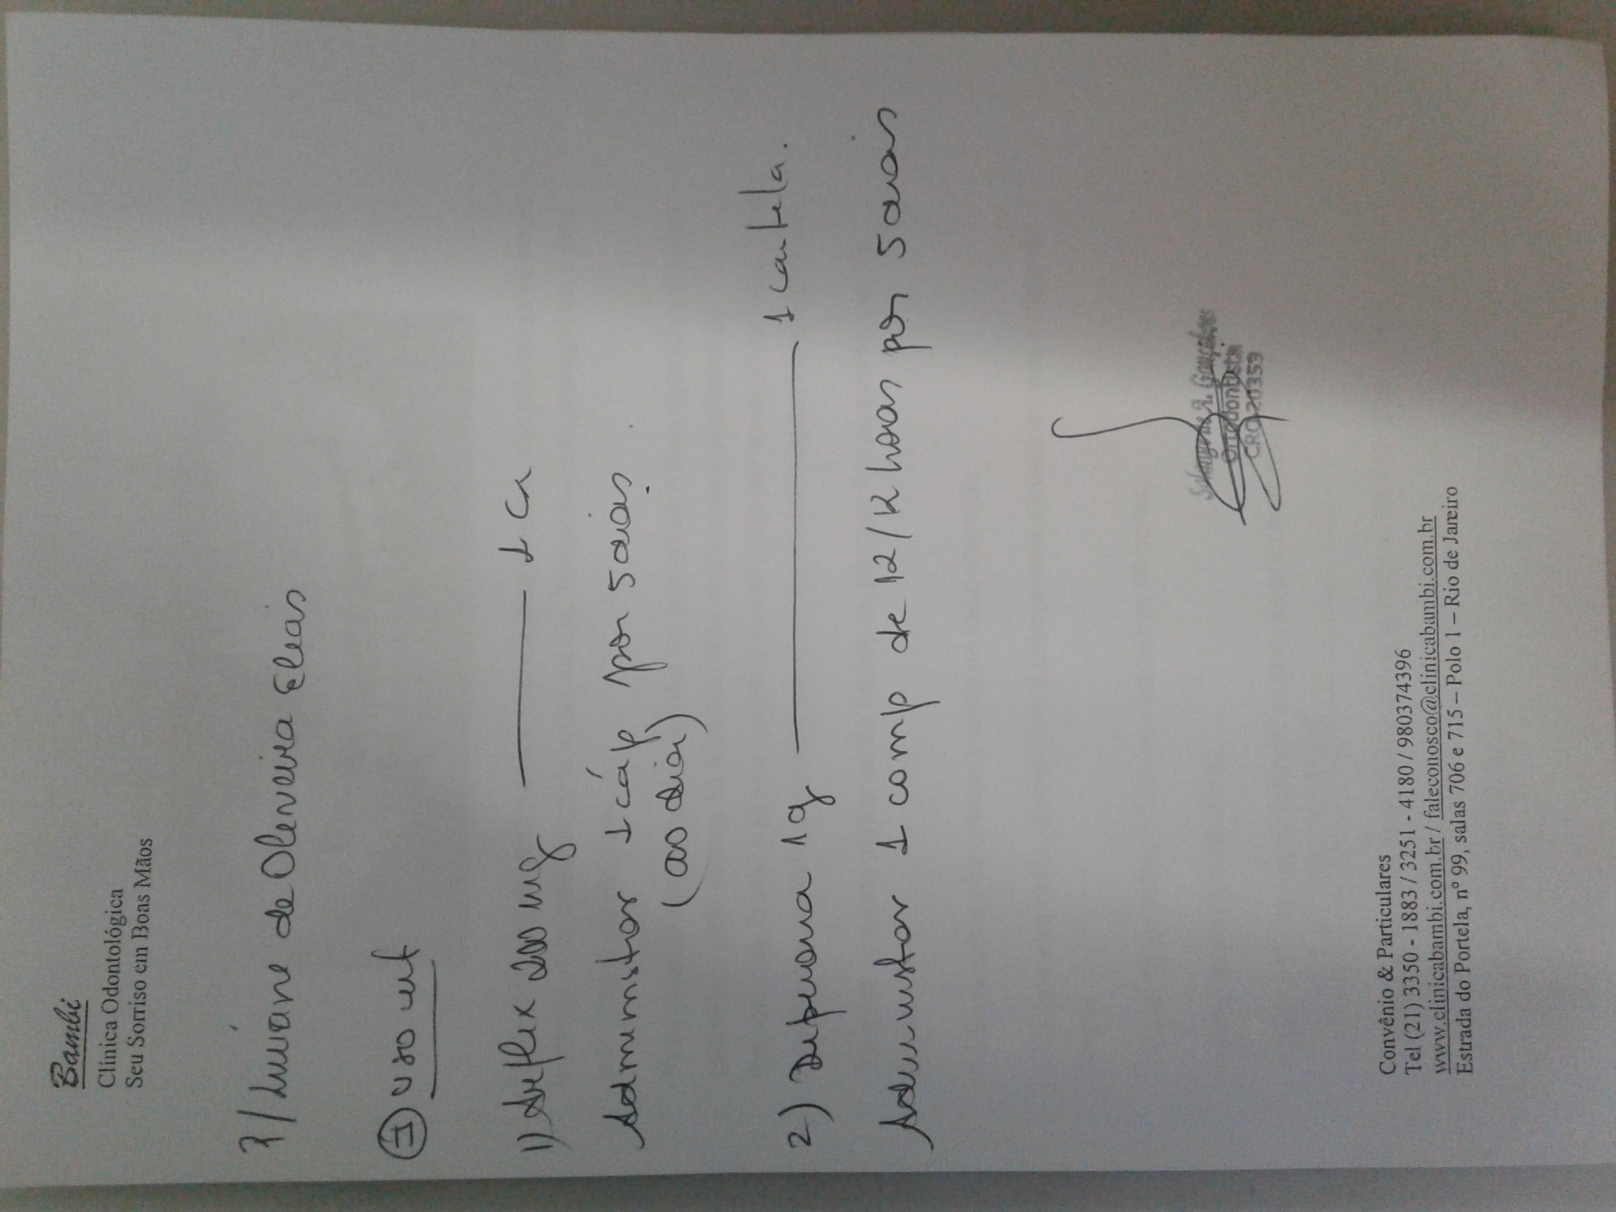 Bambi
Clinica Odontológica
Seu Sorriso em Boas Mãos
P/ Luiane de Oliveira Elias
I uso int
1) Arflex 200 mg — 1 cx
Administrar 1 cáp por 5 dias.
(ao dia)
2) Dipirona 1g — 1 cartela.
Administrar 1 comp de 12/12 horas por 5 dias
Gonçalves
Ortodontista
CRO 20353
Convênio & Particulares
Tel (21) 3350 - 1883 / 3251 - 4180 / 980374396
www.clinicabambi.com.br / faleconosco@clinicabambi.com.br
Estrada do Portela, nº 99, salas 706 e 715 – Polo 1 – Rio de Janeiro